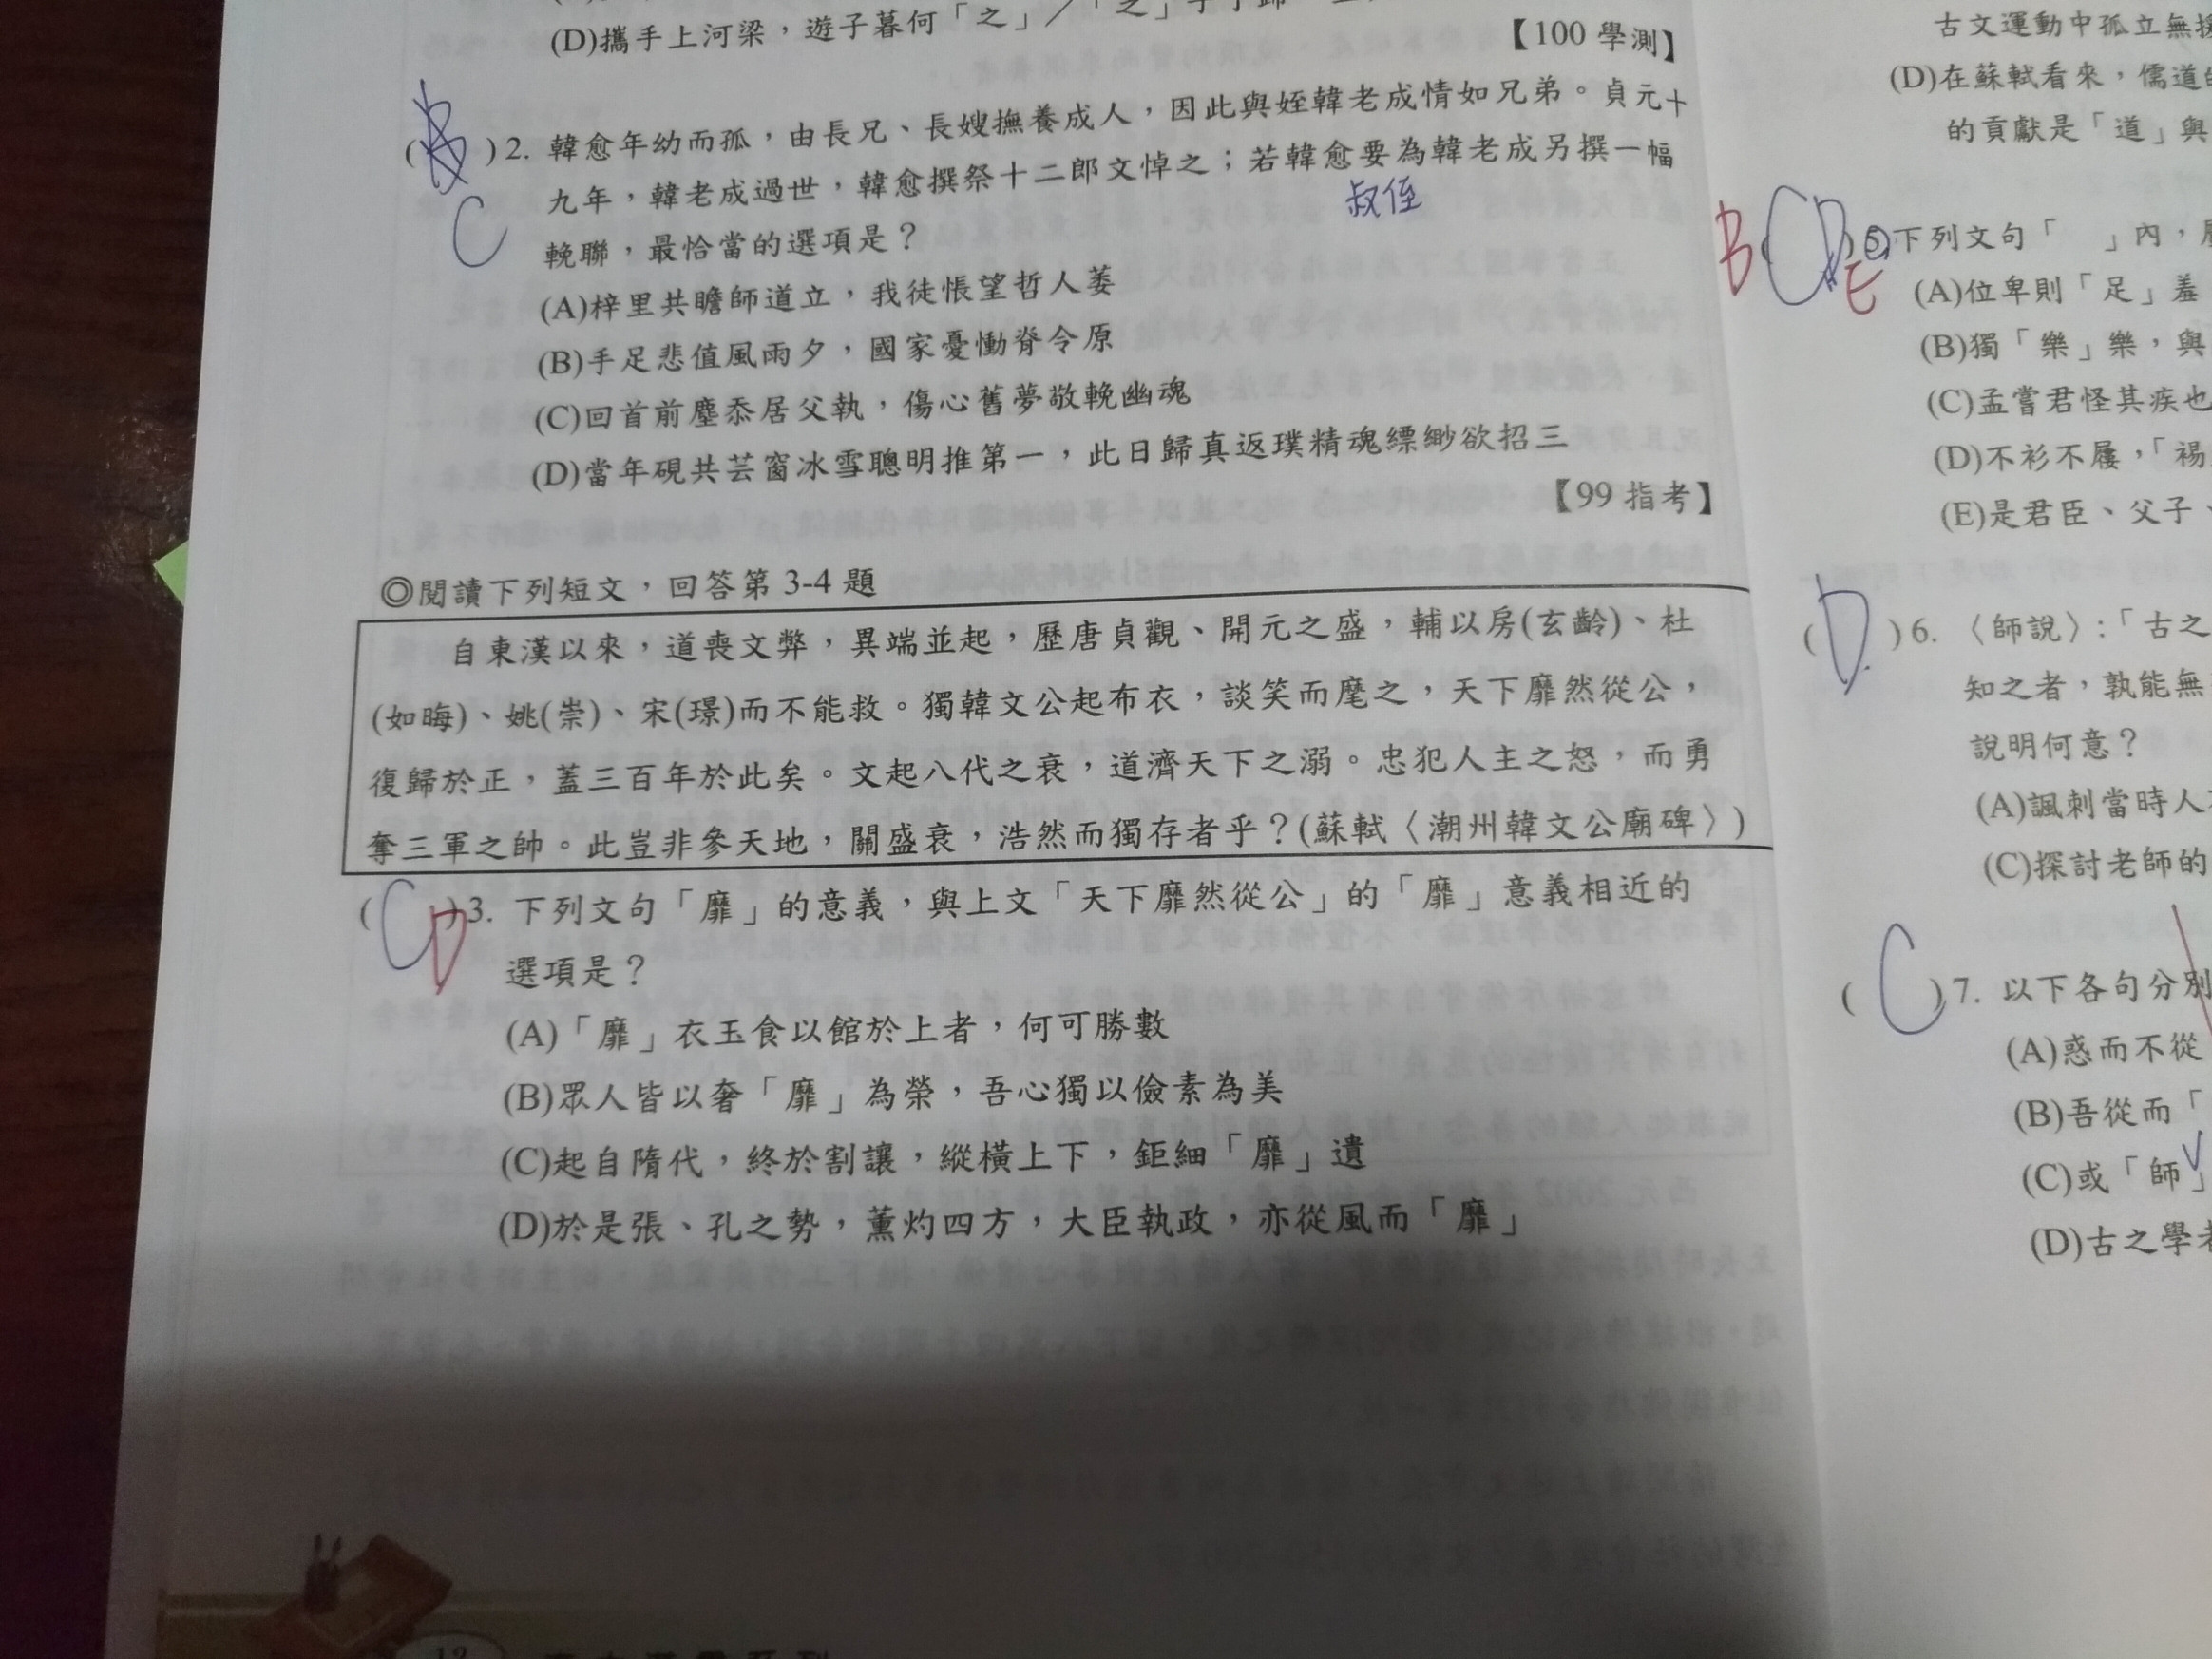 (D)攜手上河梁，遊子暮何「之」／「之」子于歸
【100 學測】
C
( )2. 韓愈年幼而孤，由長兄、長嫂撫養成人，因此與姪韓老成情如兄弟。貞元十
九年，韓老成過世，韓愈撰祭十二郎文悼之；若韓愈要為韓老成另撰一幅
叔侄
輓聯，最恰當的選項是？
(A)梓里共瞻師道立，我徒悵望哲人萎
(B)手足悲值風雨夕，國家憂慟脊令原
(C)回首前塵忝居父執，傷心舊夢敬輓幽魂
(D)當年硯共芸窗冰雪聰明推第一，此日歸真返璞精魂縹緲欲招三
【99 指考】
◎閱讀下列短文，回答第 3-4 題
自東漢以來，道喪文弊，異端並起，歷唐貞觀、開元之盛，輔以房(玄齡)、杜
(如晦)、姚(崇)、宋(璟)而不能救。獨韓文公起布衣，談笑而麾之，天下靡然從公，
復歸於正，蓋三百年於此矣。文起八代之衰，道濟天下之溺。忠犯人主之怒，而勇
奪三軍之帥。此豈非參天地，關盛衰，浩然而獨存者乎？(蘇軾〈潮州韓文公廟碑〉)
( C D )3. 下列文句「靡」的意義，與上文「天下靡然從公」的「靡」意義相近的
選項是？
(A)「靡」衣玉食以館於上者，何可勝數
(B)眾人皆以奢「靡」為榮，吾心獨以儉素為美
(C)起自隋代，終於割讓，縱橫上下，鉅細「靡」遺
(D)於是張、孔之勢，薰灼四方，大臣執政，亦從風而「靡」
12
古文運動中孤立無援
(D)在蘇軾看來，儒道的
的貢獻是「道」與
B C D E
5.下列文句「　」內，
(A)位卑則「足」羞
(B)獨「樂」樂，與
(C)孟嘗君怪其疾也
(D)不衫不履，「裼
(E)是君臣、父子、
( D )6. 〈師說〉：「古之
知之者，孰能無
說明何意？
(A)諷刺當時人
(C)探討老師的
( C )7. 以下各句分別
(A)惑而不從
(B)吾從而「
(C)或「師」
(D)古之學者